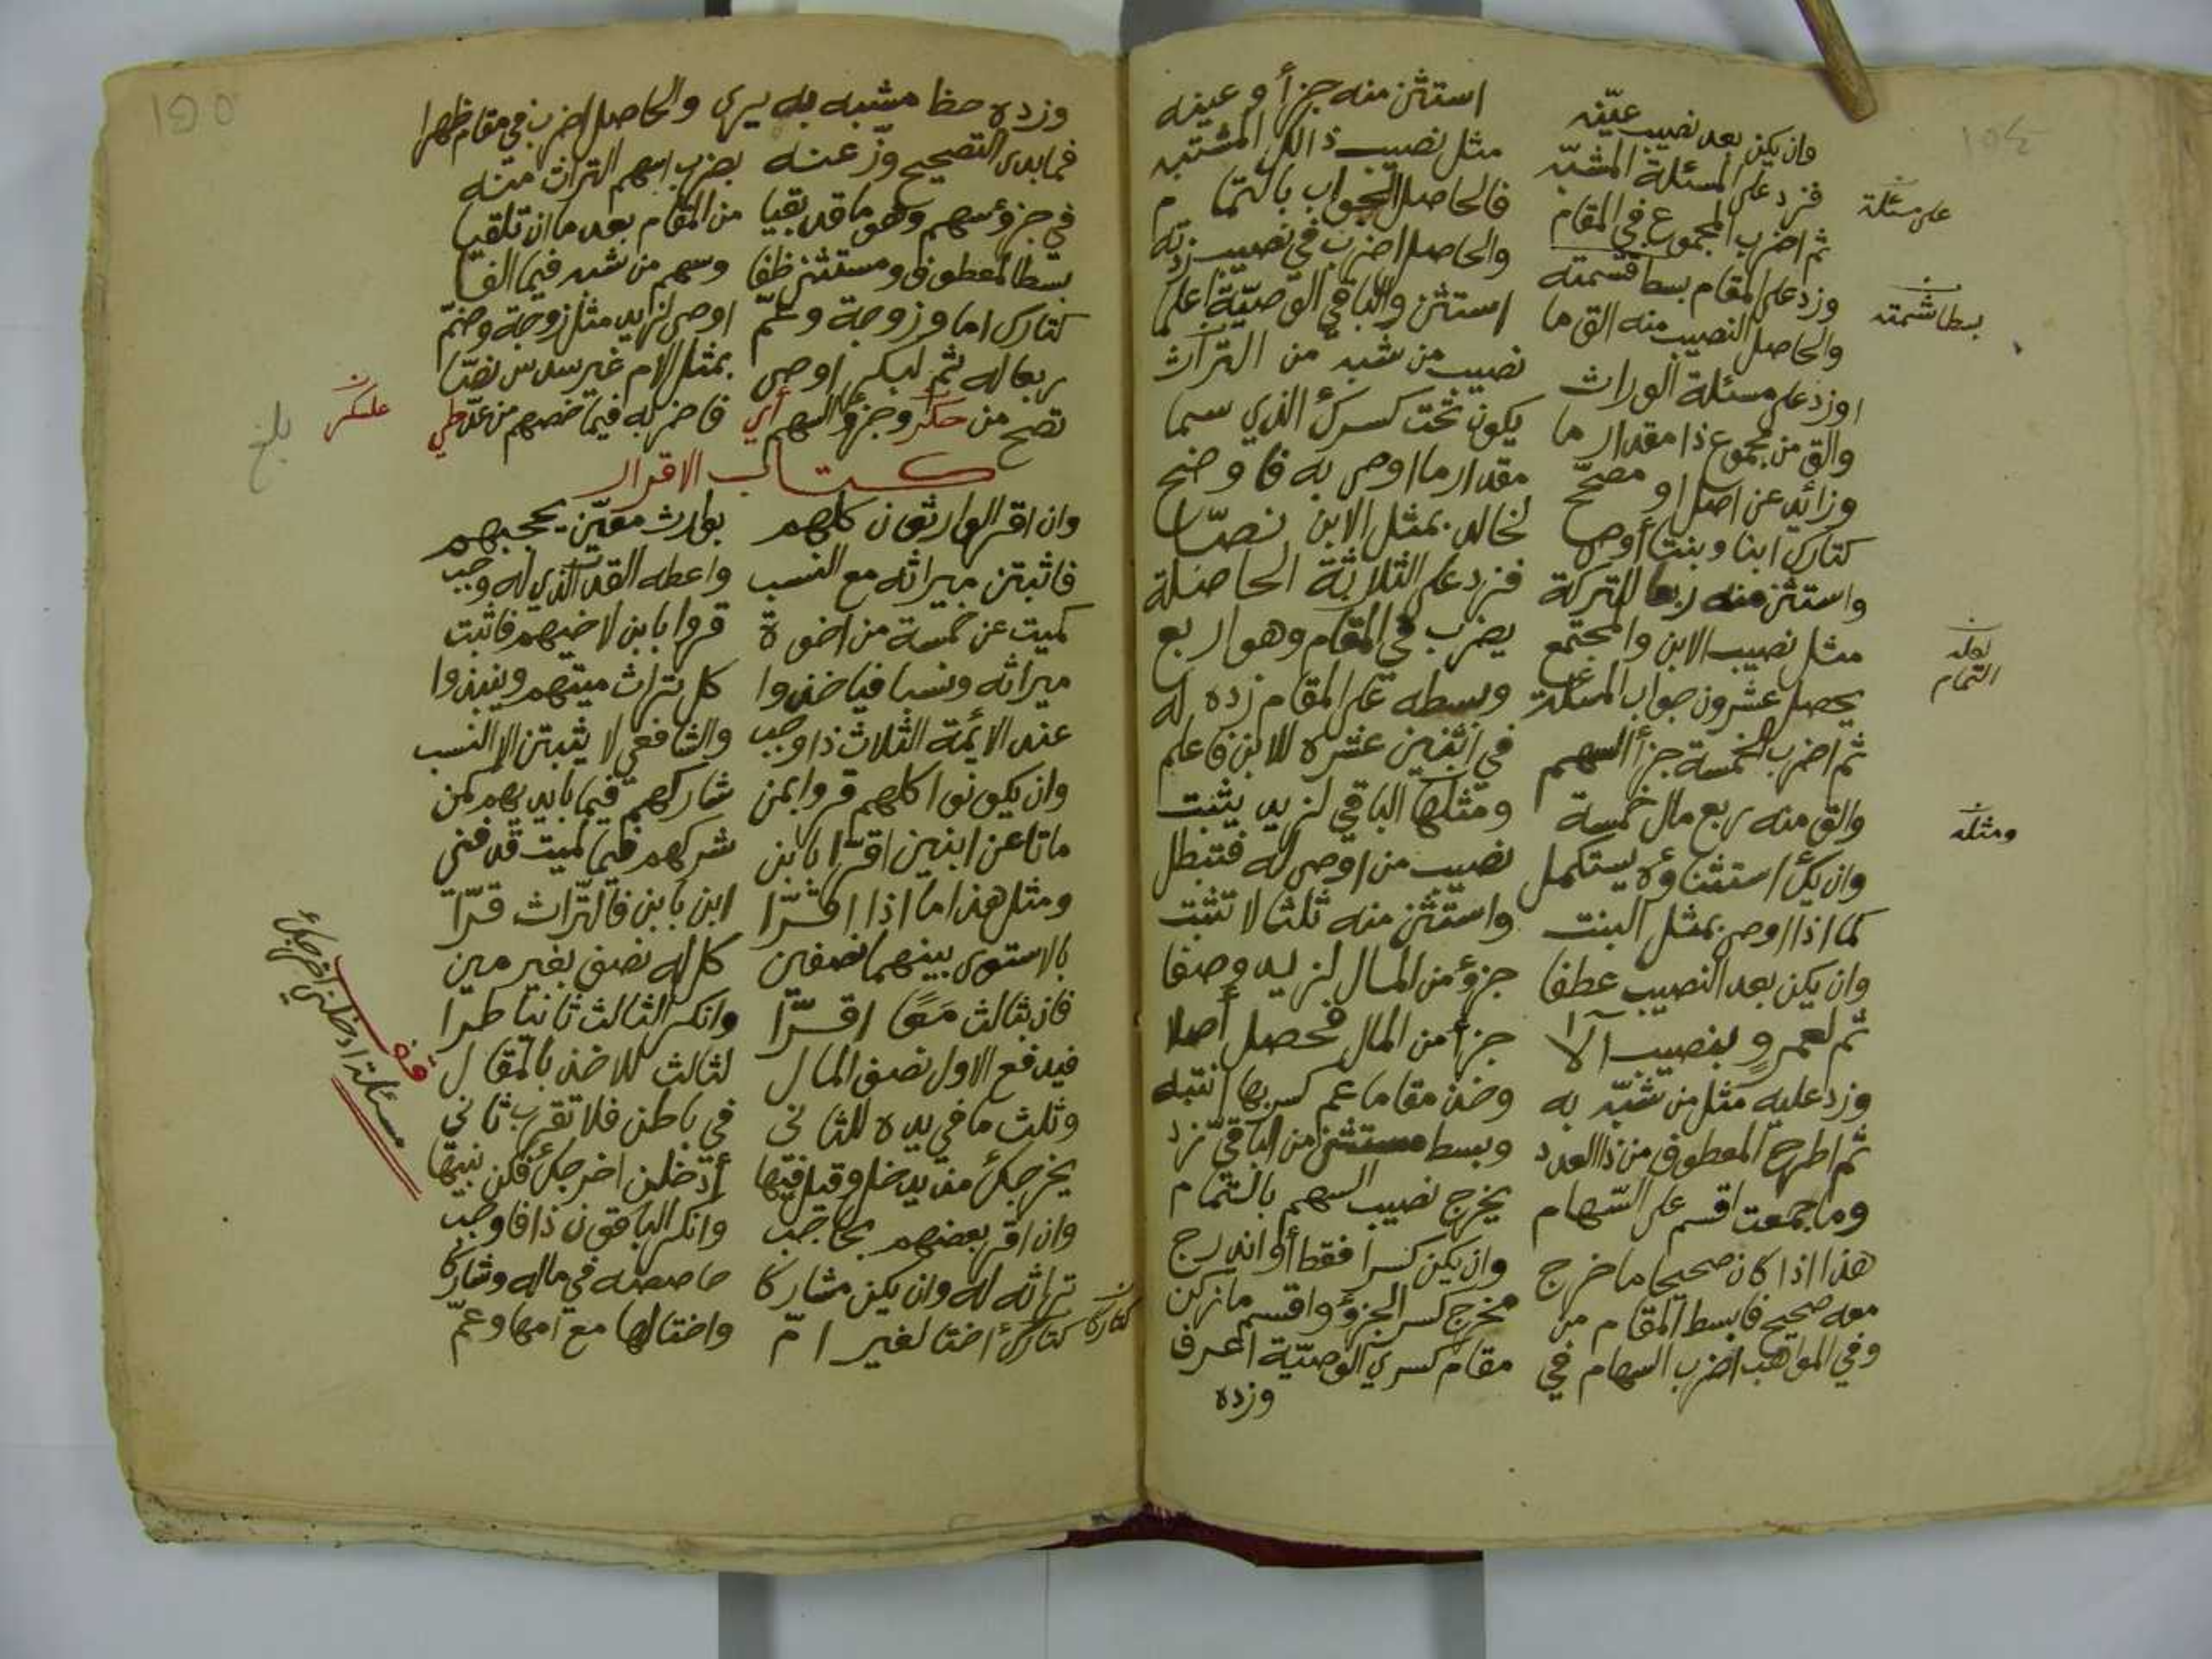 وان يكن بعد نصيب عيّنه استثن منه جزأ وعينه
فزد على المسئلة المشبّه مثل نصيب ذالك المشتبه
ثم اضرب المجموع في المقام فالحاصل الجواب بالتمام
وزد على المقام بسط قسمته والحاصل اضرب في نصيب زدته
والحاصل النصيب منه الق ما استثن والباقي الوصيّة اعلما
اوزد على مسئلة الوراث نصيب من شبه من التراث
والق من مجموع ذا مقدار ما يكون تحت كسرك الذي سما
وزائد عن اصل او مصحّح مقدار ما اوصى به فاوضح
كتارك ابنا وبنتا أوصى لخالد بمثل الابن نصّا
واستثن منه ربعا للتركة فزد على الثلاثة الحاصلة
مثل نصيب الابن والمجتمع يضرب في المقام وهو اربع
يحصل عشرون جواب المسئلة وبسطه على المقام زده له
ثم اضرب الخمسة جزأ السهم في اثنين عشره للابن فاعلم
والق منه ربع مال خمسة ومثلها الباقي لزيد يثبت
وان يك استثناؤه يستكمل نصيب من اوصى له فتبطل
كما اذا اوصى بمثل البنت واستثن منه ثلثا لا تثبت
وان يكن بعد النصيب عطفا جزؤ من المال لزيد وصفا
ثم لعمرو بنصيب الا جزأ من المال فحصل أصلا
وزد عليه مثل من شبّه به وخذ مقاما عم كسريها انتبه
ثم اطرح المعطوف من ذا العدد وبسط مستثنى من الباقي زد
وما جمعت اقسم على السّهام يخرج نصيب السهم بالتمام
هذا اذا كان صحيحا ما خرج وان يكن كسرا فقط أو اندرج
معه صحيح فابسط المقام من مخرج كسر الجزؤ واقسم ما زكن
وفي المواهب اضرب السهام في مقام كسري الوصيّة اعرف
وزده
على مسئلة
بسط شمته
التمام
ومثله
وزده حظا مشبه به يرى والحاصل اضرب في مقام ظهرا
فما بدى التصحيح وزّعنه بضرب اسهم التراث منه
في جزؤ سهم وهو ما قد بقيا من المقام بعد ما ان تلقيا
بسطا لمعطوف ومستثنى ظفا وسهم من شبه فيما الفا
كتارك اما وزوجة وعمّ اوصى لزيد مثل زوجة وضمّ
ربعا له ثم لبكر اوصى بمثل الام غير سدس نصّا
تصح من حكر وجزؤ السهم أي فاضربه فيما خصهم من عدّ طي
كتاب الاقرار
وان اقر الوارثون كلهم بوارث معيّن يحجبهم
فاثبتن ميراثه مع النسب واعطه القدر الذي له وجب
كميت عن خمسة من اخوة قروا بابن لاخيهم فاثبت
ميراثه ونسبا فياخذوا كل تراث ميتهم وينبذوا
عند الائمة الثلاث ذا وجب والشافعي لا يثبتن الا النسب
وان يكونوا كلهم قروا بمن شاركهم فيما بايديهم كمن
ماتا عن ابنين اقرّا بابن شركهم فيما لميت قد فني
ومثل هذا ما اذا اقرّا ابن بابن فالتراث قرّا
بالاستوى بينهما نصفين كل له نصف بغير مين
فان بثالث مَعًا اقرّا وانكر الثالث ثانيا طرا
فيدفع الاول نصف المال لثالث للاخذ بالمقال
وثلث ما في يده للثاني في باطن فلا تقرب ثاني
يخرجك من يدخل وقيل فيها أدخلن اخرجك فكن نبيها
وان اقر بعضهم بحاجب وانكر الباقون ذا فاوجب
تراثه له وان يكن مشاركا حاصصه في ماله وشاركا
كتارك أختا لغير ام واختا لها مع امها وعمّ
بلغ
قف
مسئلة ادخلني اخرجك
كتاركا